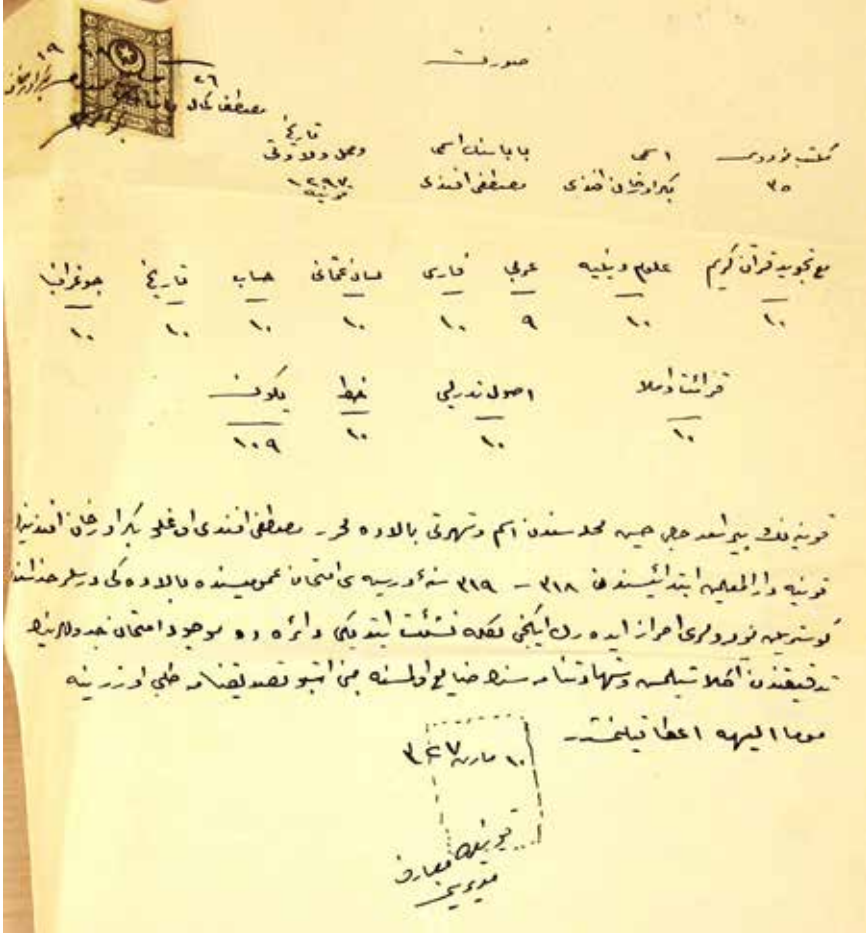 صورت
١٩
٢٦
مصطفى كمال
مكتب نومروسى اسمى باباسنك اسمى تاريخ ومحل ولادتى
٣٥ بكر اورخان افندى مصطفى افندى ١٢٩٧ قونيه
مع تجويد قرآن كريم علوم دينيه عربى فارسى لسان عثمانى حساب تاريخ جوغرافيا
١٠ ١٠ ٩ ١٠ ١٠ ١٠ ١٠ ١٠
قرائت واملا اصول تدريس خط يكون
١٠ ١٠ ١٠ ١٠٩
قونيه‌نك پير اسعد محله‌سندن اسم وشهرتى بالاده محرر مصطفى افندى اوغلى بكر اورخان افندينك
قونيه دار المعلمين ابتدائيسندن ٣١٨ – ٣١٩ سنهٔ درسيه‌سى امتحان عموميسنده بالاده‌كى درسلر حذاسنده
كوستريلن نومرولرى احراز ايده‌رك ايكنجى اوله نشئت ايتديكى دائره‌ده موجود امتحان جدوللرينك
تدقيقندن اكلاشيلمش وشهادتنامه‌سنك ضايع اولمسنه مبنى اشبو تصديقنامه طلبى اوزرينه
مومااليهه اعطا قيلنمشدر
١٠ مارت ٣٢٧
قونيه معارف
مديريتى